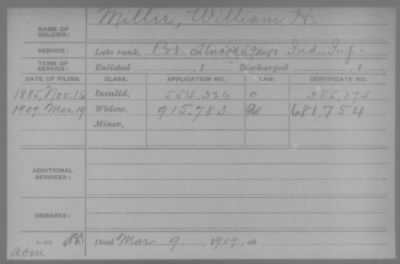 NAME OF SOLDIER: Miller, William H.
SERVICE: Late rank, Pvt. Co. 59 Regt. Ind. Inf.
TERM OF SERVICE: Enlisted , 1 Discharged , 1
DATE OF FILING. CLASS. APPLICATION NO. LAW. CERTIFICATE NO.
1885, Nov. 16 Invalid, 554,326 0
1909 Mar. 19 Widow, 915,783 681,754
Minor,
ADDITIONAL SERVICES:
REMARKS:
Died Mar. 9, 1909, at